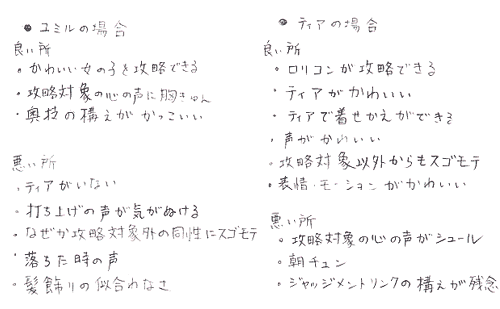 ● ユミルの場合
良い所
• かわいい女の子を攻略できる
• 攻略対象の心の声に胸きゅん
• 奥技の構えがかっこいい
悪い所
• ティアがいない
• 打ち上げの声が気がぬける
• なぜか攻略対象外の同性にスゴモテ
• 落ちた時の声
• 髪飾りの似合わなさ
● ティアの場合
良い所
• ロリコンが攻略できる
• ティアがかわいい
• ティアで着せかえができる
• 声がかわいい
• 攻略対象以外からもスゴモテ
• 表情・モーションがかわいい
悪い所
• 攻略対象の心の声がシュール
• 朝チュン
• ジャッジメントリンクの構えが残念